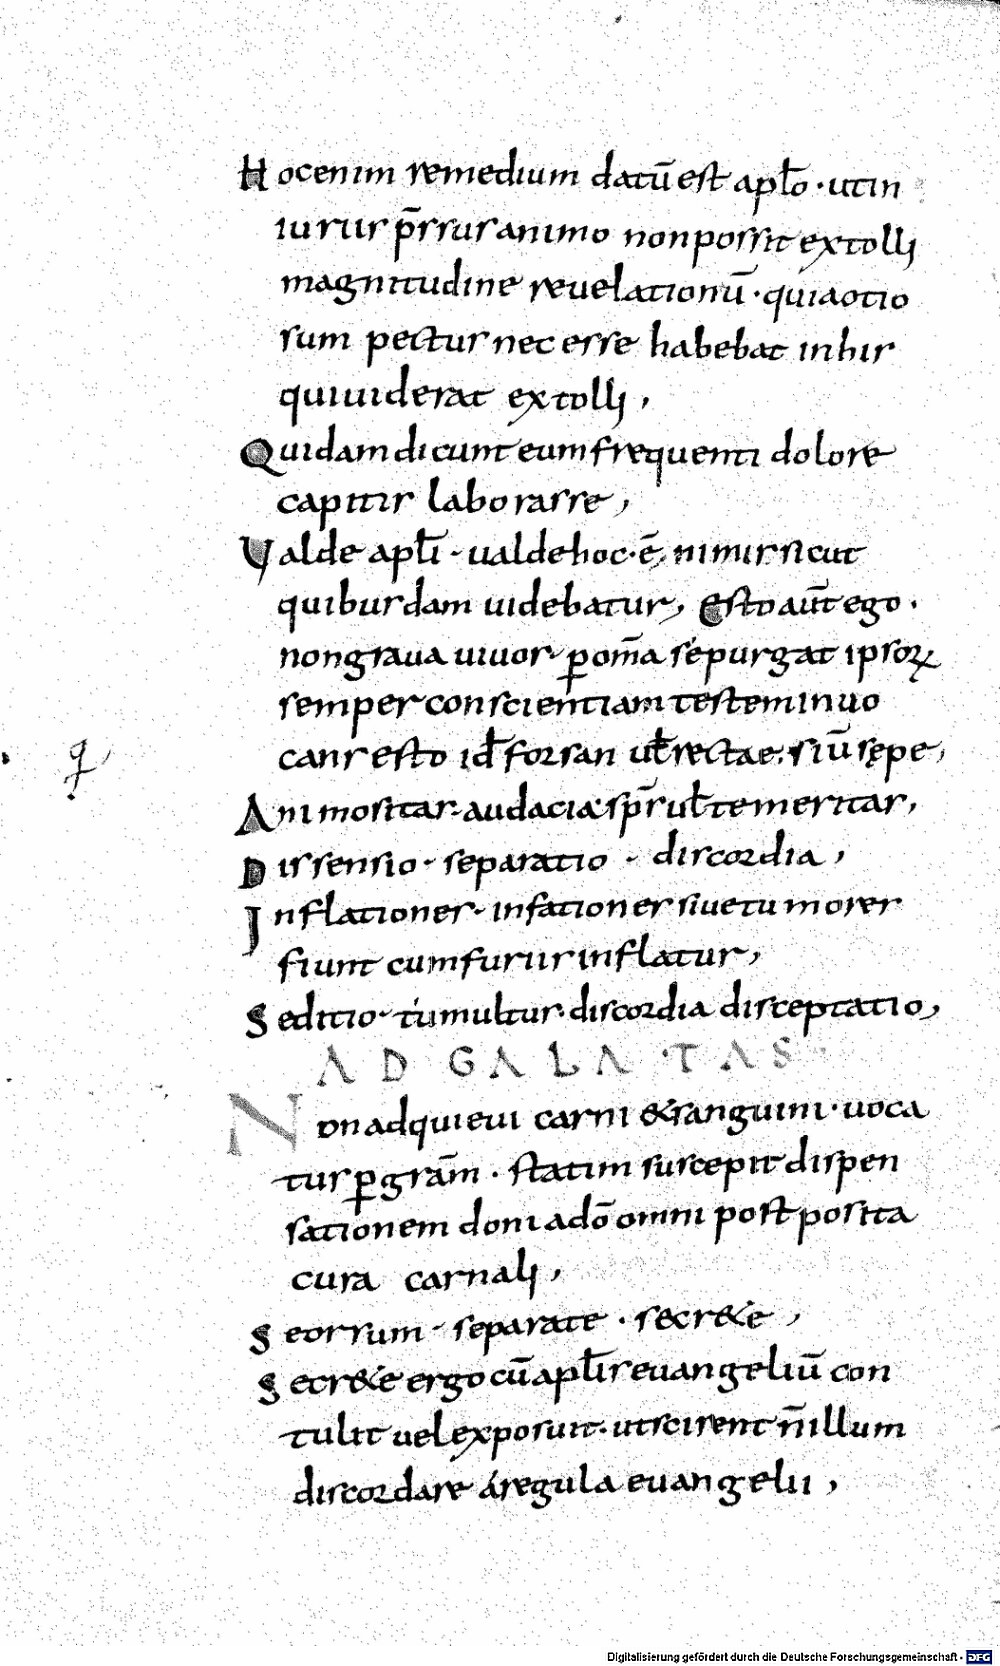 Hocenim remedium datū est apło · utin
iuriis p̄ssus animo non possit extolli
magnitudine revelationū · quia otio
sum pectus necesse habebat inhis
quiuiderat extolli,
Quidam dicunt eum frequenti dolore
capitis laborasse,
Valde apłi · ualde hoc · ē, nimis sicut
quibusdam uidebatur, Esto aūt ego ·
non graua uiuos · ꝑ om̄a se purgat ipsoꝝ
semper conscientiam testem inuo
cans esto id forsan uł rectae · siū sępe,
Animositas · audacia sp̄s uł temeritas,
Dissensio · separatio · discordia,
Inflationes · insationes siue tumores
fiunt cum furiis inflatur,
Seditio · tumultus discordia disceptatio,
AD GALATAS
Non adquieui carni & sanguini · uoca
tus ꝑ grām · statim suscepit dispen
sationem doni adō omni postposita
cura carnali,
Seorsum · separate · secr&e,
Secr&e ergo cū apłis euangeliū con
tulit uel exposuit · ut scirent n̄ illum
discordare á regula euangelii,
Digitalisierung gefördert durch die Deutsche Forschungsgemeinschaft - DFG